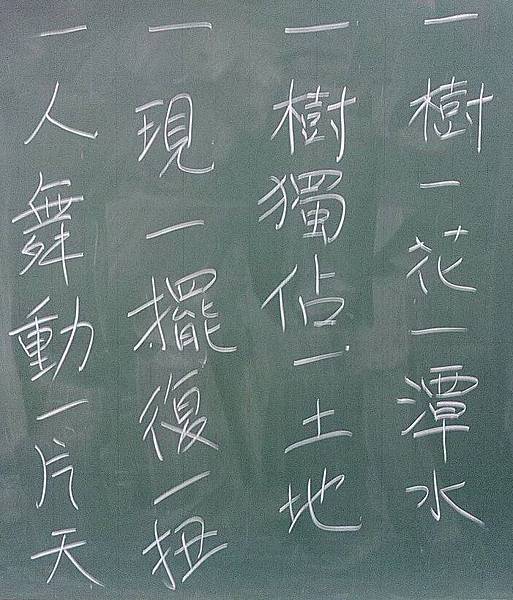 一樹一花一潭水
一樹獨佔一土地
一現一擺復一扭
一人舞動一片天